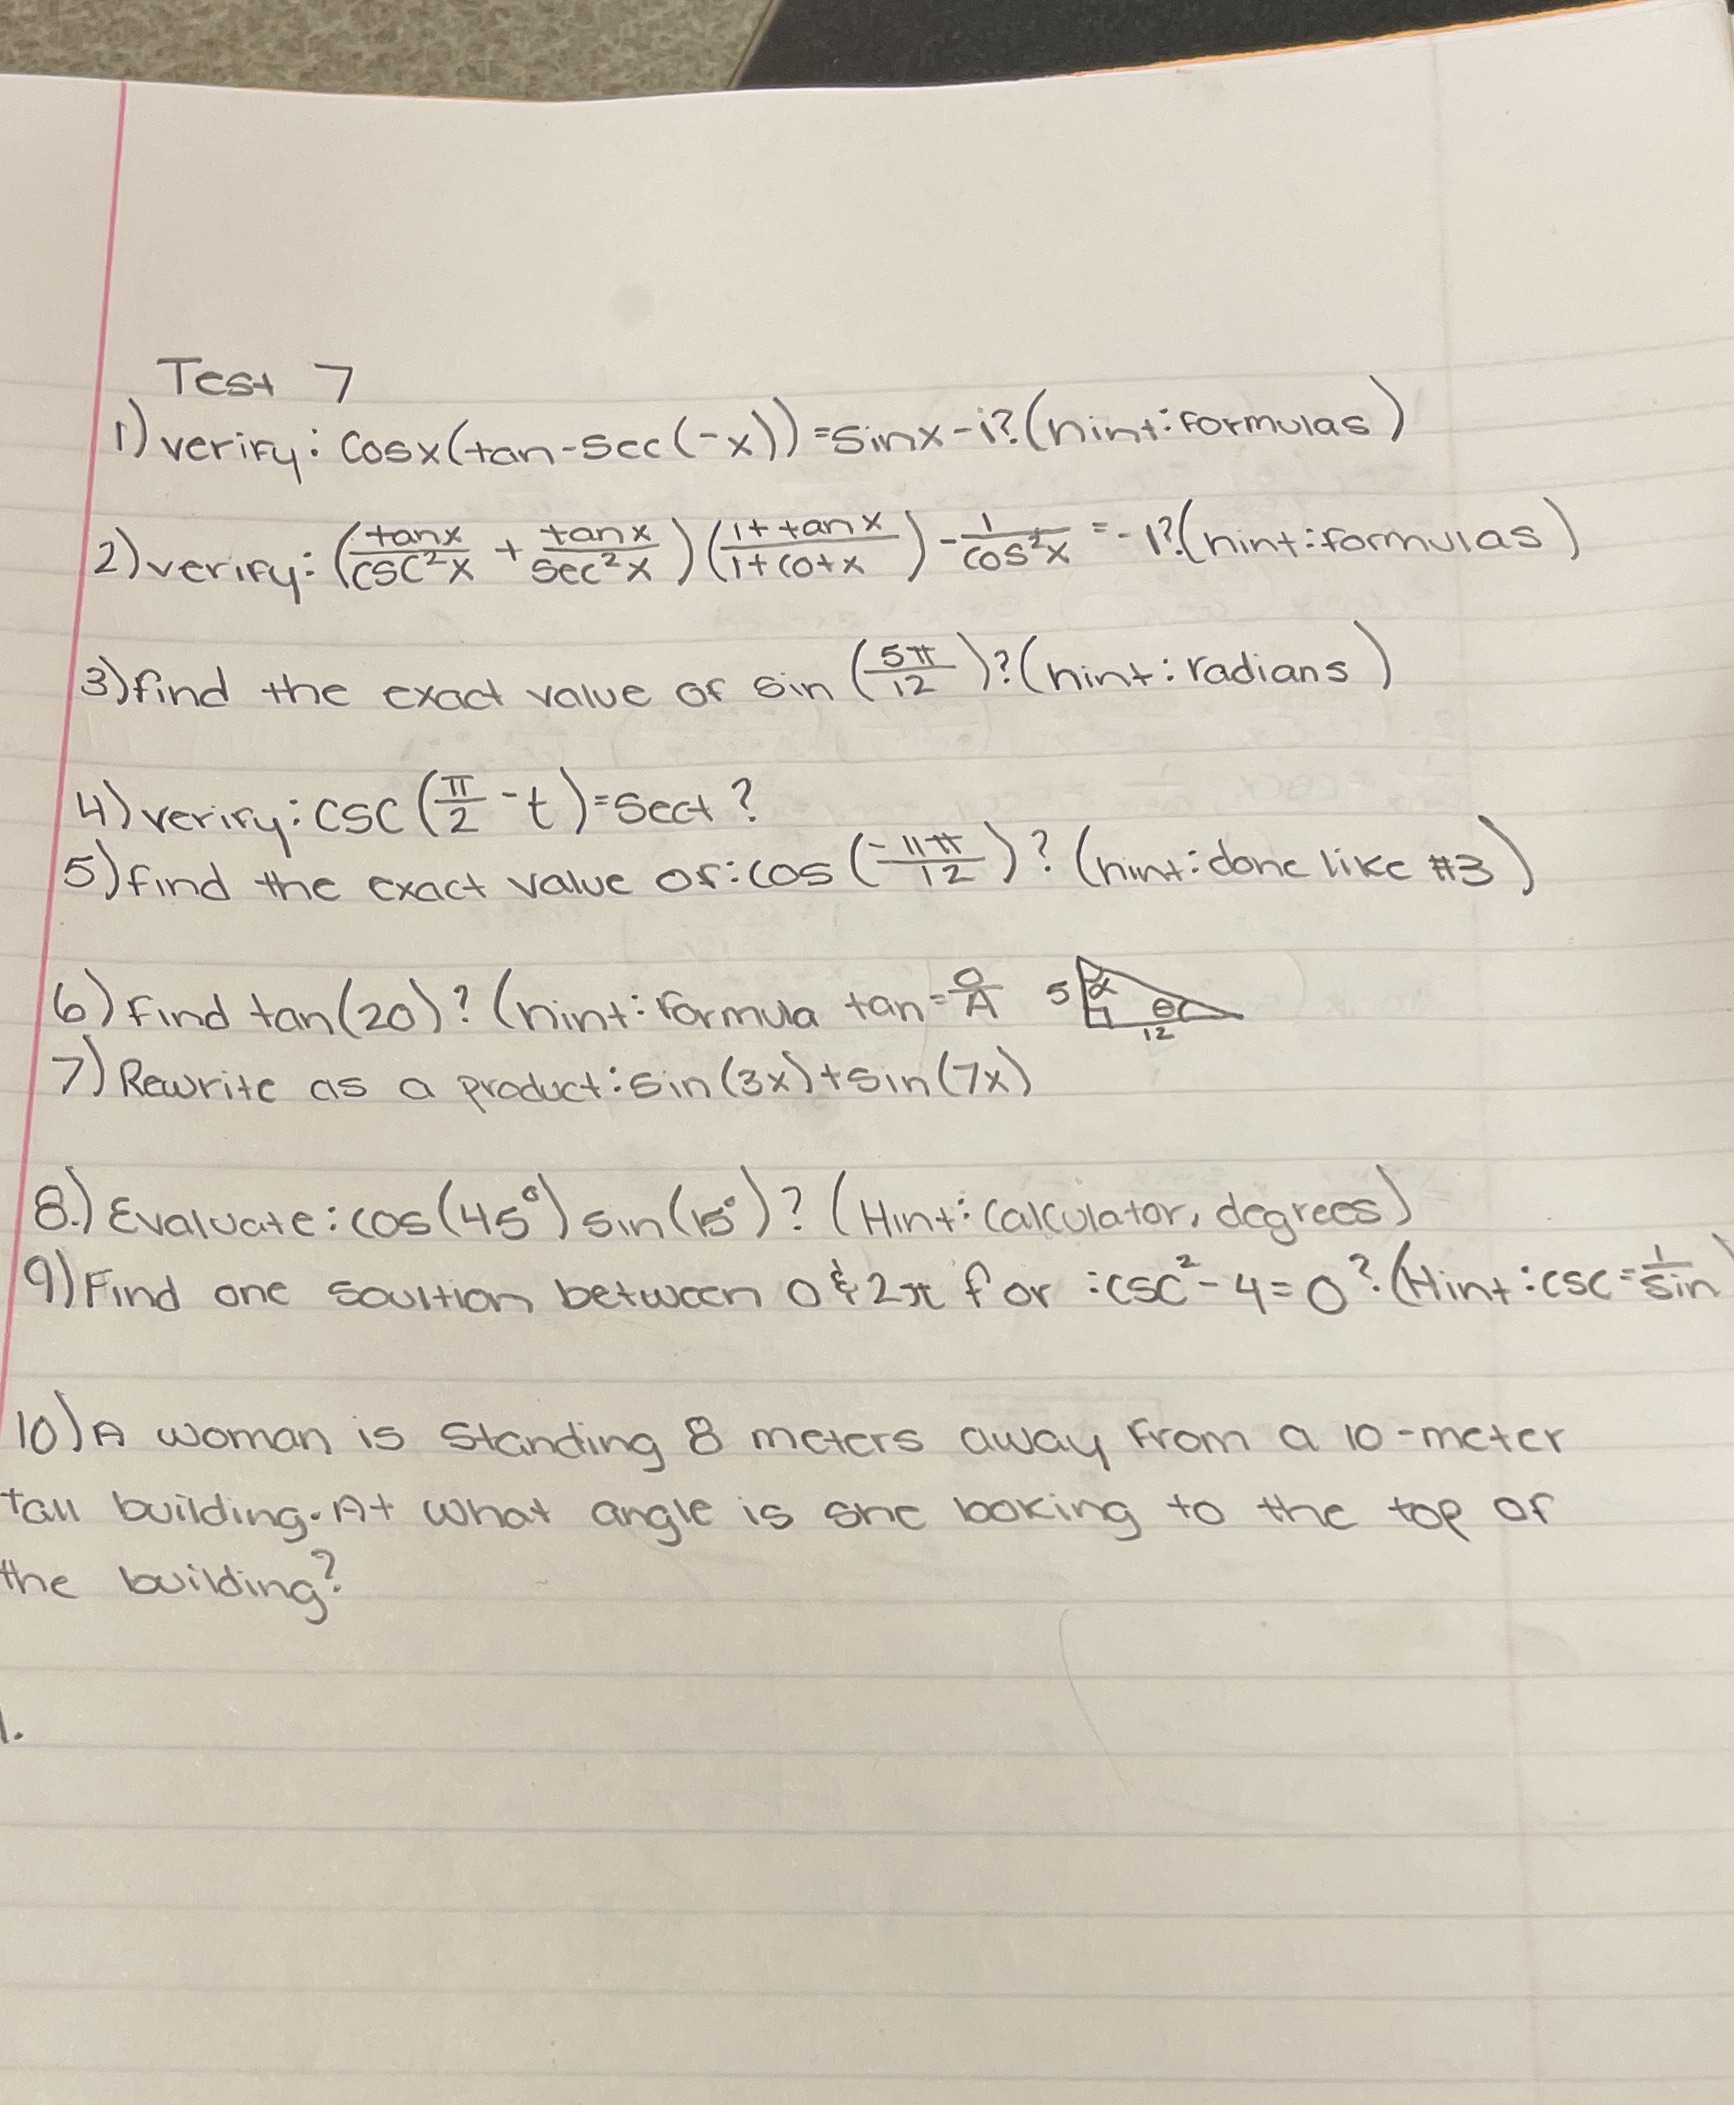 Test 7
1) verify: cosx(tan-sec(-x))=sinx-1?(hint:formulas)
2) verify: (tanx/csc²x + tanx/sec²x)(1+tanx/1+cotx) - 1/cos²x = -1?(hint:formulas)
3) find the exact value of sin (5π/12)?(hint:radians)
4) verify: csc(π/2 -t)=sect?
5) find the exact value of:cos(-11π/12)? (hint:done like #3)
6) find tan(20)? (hint: formula tan=O/A 5 α θ 12
7) Rewrite as a product:sin(3x)+sin(7x)
8.) Evaluate:cos(45°)sin(15°)? (Hint:calculator, degrees)
9) Find one soultion between 0 & 2π for :csc²-4=0?(Hint:csc=1/sin)
10) A woman is standing 8 meters away from a 10-meter
tall building. At what angle is she looking to the top of
the building?
1.